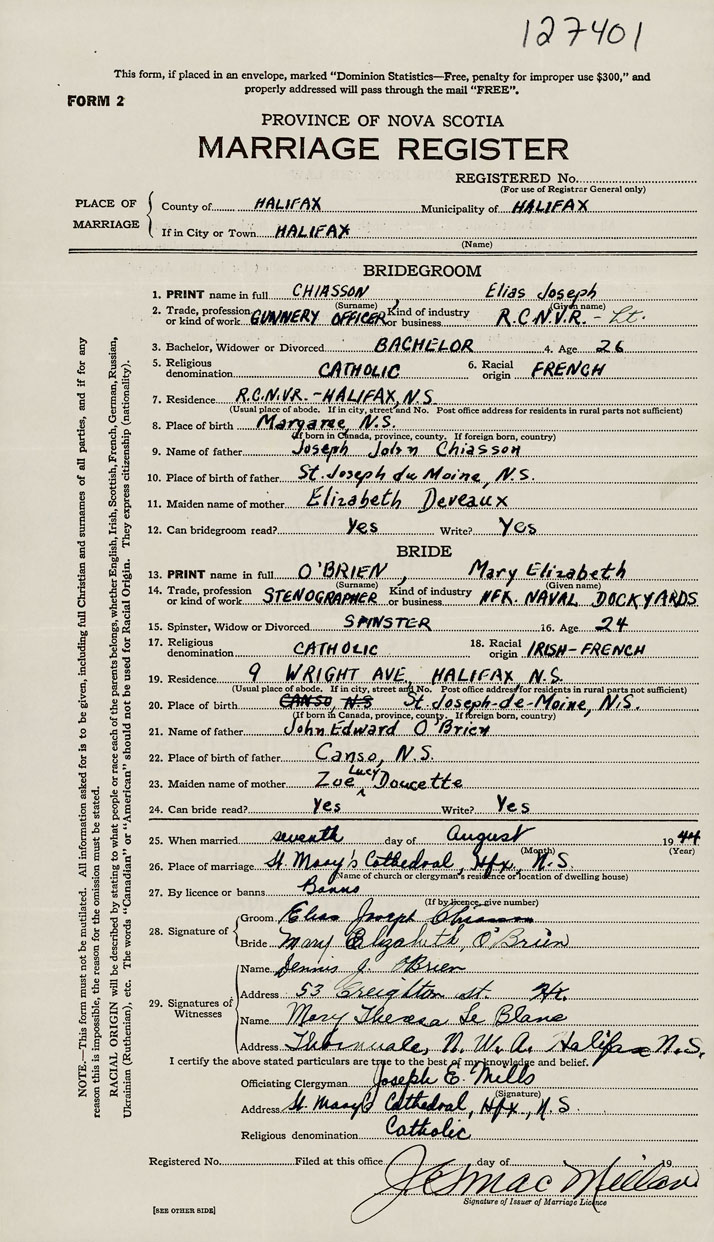 127401
This form, if placed in an envelope, marked "Dominion Statistics—Free, penalty for improper use $300," and
properly addressed will pass through the mail "FREE".
FORM 2
PROVINCE OF NOVA SCOTIA
MARRIAGE REGISTER
REGISTERED No.
(For use of Registrar General only)
PLACE OF MARRIAGE
County of HALIFAX Municipality of HALIFAX
If in City or Town HALIFAX
(Name)
BRIDEGROOM
1. PRINT name in full CHIASSON, Elias Joseph
(Surname) (Given name)
2. Trade, profession or kind of work GUNNERY OFFICER Kind of industry or business R.C.N.V.R. - Lt.
3. Bachelor, Widower or Divorced BACHELOR 4. Age 26
5. Religious denomination CATHOLIC 6. Racial origin FRENCH
7. Residence R.C.N.V.R. - HALIFAX, N.S.
(Usual place of abode. If in city, street and No. Post office address for residents in rural parts not sufficient)
8. Place of birth Margaree, N.S.
(If born in Canada, province, county. If foreign born, country)
9. Name of father Joseph John Chiasson
10. Place of birth of father St. Joseph du Moine, N.S.
11. Maiden name of mother Elizabeth Deveaux
12. Can bridegroom read? Yes Write? Yes
BRIDE
13. PRINT name in full O'BRIEN, Mary Elizabeth
(Surname) (Given name)
14. Trade, profession or kind of work STENOGRAPHER Kind of industry or business HFX. NAVAL DOCKYARDS
15. Spinster, Widow or Divorced SPINSTER 16. Age 24
17. Religious denomination CATHOLIC 18. Racial origin IRISH-FRENCH
19. Residence 9 WRIGHT AVE, HALIFAX N.S.
(Usual place of abode. If in city, street and No. Post office address for residents in rural parts not sufficient)
20. Place of birth CANSO, N.S St. Joseph-de-Moine, N.S.
(If born in Canada, province, county. If foreign born, country)
21. Name of father John Edward O'Brien
22. Place of birth of father Canso, N.S.
23. Maiden name of mother Zoe Lucy Doucette
24. Can bride read? Yes Write? Yes
25. When married seventh day of August 1944
(Month) (Year)
26. Place of marriage St. Mary's Cathedral, Hfx, N.S.
(Name of church or clergyman's residence or location of dwelling house)
27. By licence or banns Banns
(If by licence, give number)
28. Signature of
Groom Elias Joseph Chiasson
Bride Mary Elizabeth O'Brien
29. Signatures of Witnesses
Name Dennis J. O'Brien
Address 53 Creighton st. Hx.
Name Mary Theresa Le Blanc
Address N. W. A. Halifax N.S.
I certify the above stated particulars are true to the best of my knowledge and belief.
Officiating Clergyman Joseph E. Mills
(Signature)
Address St. Mary's Cathedral, Hfx, N.S.
Religious denomination Catholic
Registered No. Filed at this office day of 19
J MacMillan
Signature of Issuer of Marriage Licence
[SEE OTHER SIDE]
NOTE.—This form must not be mutilated. All information asked for is to be given, including full Christian and surnames of all parties, and if for any
reason this is impossible, the reason for the omission must be stated.
RACIAL ORIGIN will be described by stating to what people or race each of the parents belongs, whether English, Irish, Scottish, French, German, Russian,
Ukrainian (Ruthenian), etc. The words "Canadian" or "American" should not be used for Racial Origin. They express citizenship (nationality).